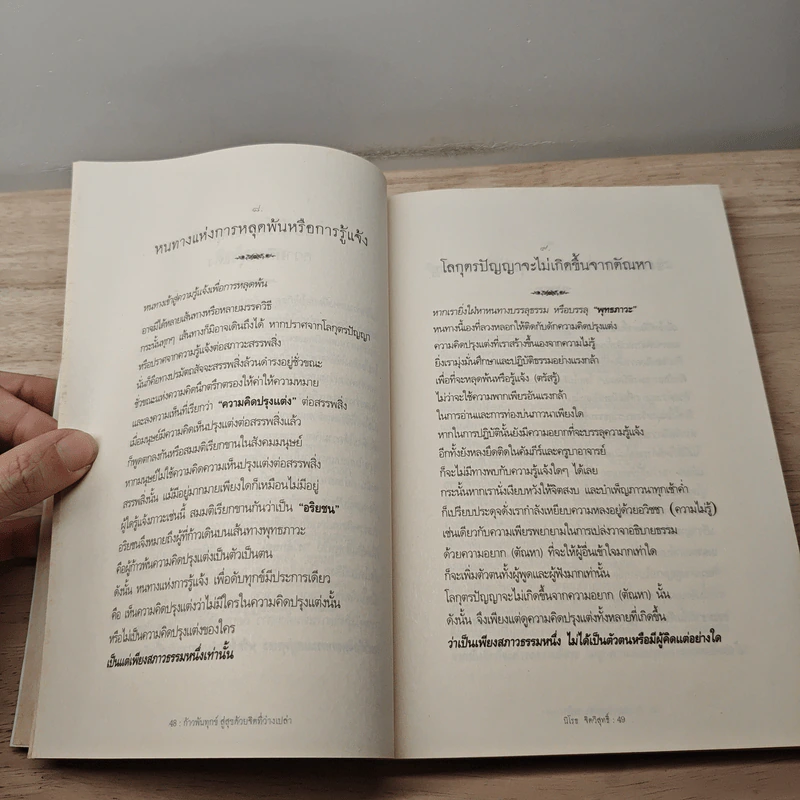 ๘.
หนทางแห่งการหลุดพ้นหรือการรู้แจ้ง
หนทางเข้าสู่ความรู้แจ้งเพื่อการหลุดพ้น
อาจมีได้หลายเส้นทางหรือหลายมรรควิธี
กระนั้นทุกๆ เส้นทางก็มิอาจเดินถึงได้ หากปราศจากโลกุตรปัญญา
หรือปราศจากความรู้แจ้งต่อสภาวะสรรพสิ่ง
นั่นก็คือทางปรมัตถสัจจะสรรพสิ่งล้วนดำรงอยู่ชั่วขณะ
ชั่วขณะแห่งความคิดนึกตรึกตรองให้ค่าให้ความหมาย
และลงความเห็นที่เรียกว่า “ความคิดปรุงแต่ง” ต่อสรรพสิ่ง
เมื่อมนุษย์มีความคิดเห็นปรุงแต่งต่อสรรพสิ่งแล้ว
ก็พูดตกลงกันหรือสมมติเรียกขานในสังคมมนุษย์
หากมนุษย์ไม่ใช้ความคิดความเห็นปรุงแต่งต่อสรรพสิ่ง
สรรพสิ่งนั้น แม้มีอยู่มากมายเพียงใดก็เหมือนไม่มีอยู่
ผู้ใดรู้แจ้งภาวะเช่นนี้ สมมติเรียกขานกันว่าเป็น “อริยชน”
อริยชนจึงหมายถึงผู้ที่ก้าวเดินบนเส้นทางพุทธภาวะ
คือผู้ก้าวพ้นความคิดปรุงแต่งเป็นตัวเป็นตน
ดังนั้น หนทางแห่งการรู้แจ้ง เพื่อดับทุกข์มีประการเดียว
คือ เห็นความคิดปรุงแต่งว่าไม่มีใครในความคิดปรุงแต่งนั้น
หรือไม่เป็นความคิดปรุงแต่งของใคร
เป็นแต่เพียงสภาวธรรมหนึ่งเท่านั้น
48 : ก้าวพ้นทุกข์ สู่สุขด้วยจิตที่ว่างเปล่า
๙.
โลกุตรปัญญาจะไม่เกิดขึ้นจากตัณหา
หากเรายิ่งใฝ่หาหนทางบรรลุธรรม หรือบรรลุ “พุทธภาวะ”
หนทางนี้เองที่ลวงหลอกให้ติดกับดักความคิดปรุงแต่ง
ความคิดปรุงแต่งที่เราสร้างขึ้นเองจากความไม่รู้
ยิ่งเรามุ่งมั่นศึกษาและปฏิบัติธรรมอย่างแรงกล้า
เพื่อที่จะหลุดพ้นหรือรู้แจ้ง (ตรัสรู้)
ไม่ว่าจะใช้ความพากเพียรอันแรงกล้า
ในการอ่านและการท่องบ่นภาวนาเพียงใด
หากในการปฏิบัตินั้นยังมีความอยากที่จะบรรลุความรู้แจ้ง
อีกทั้งยังหลงยึดติดในคัมภีร์และครูบาอาจารย์
ก็จะไม่มีทางพบกับความรู้แจ้งใดๆ ได้เลย
กระนั้นหากเรานั่งเงียบหวังให้จิตสงบ และบำเพ็ญภาวนาทุกเช้าค่ำ
ก็เปรียบประดุจดั่งเรากำลังเหยียบความหลงอยู่ด้วยอวิชชา (ความไม่รู้)
เช่นเดียวกับความเพียรพยายามในการเปล่งวาจาอธิบายธรรม
ด้วยความอยาก (ตัณหา) ที่จะให้ผู้อื่นเข้าใจมากเท่าใด
ก็จะเพิ่มตัวตนทั้งผู้พูดและผู้ฟังมากเท่านั้น
โลกุตรปัญญาจะไม่เกิดขึ้นจากความอยาก (ตัณหา) นั้น
ดังนั้น จึงเพียงแต่ดูความคิดปรุงแต่งทั้งหลายที่เกิดขึ้น
ว่าเป็นเพียงสภาวธรรมหนึ่ง ไม่ได้เป็นตัวตนหรือมีผู้คิดแต่อย่างใด
นิโรธ จิตวิสุทธิ์ : 49